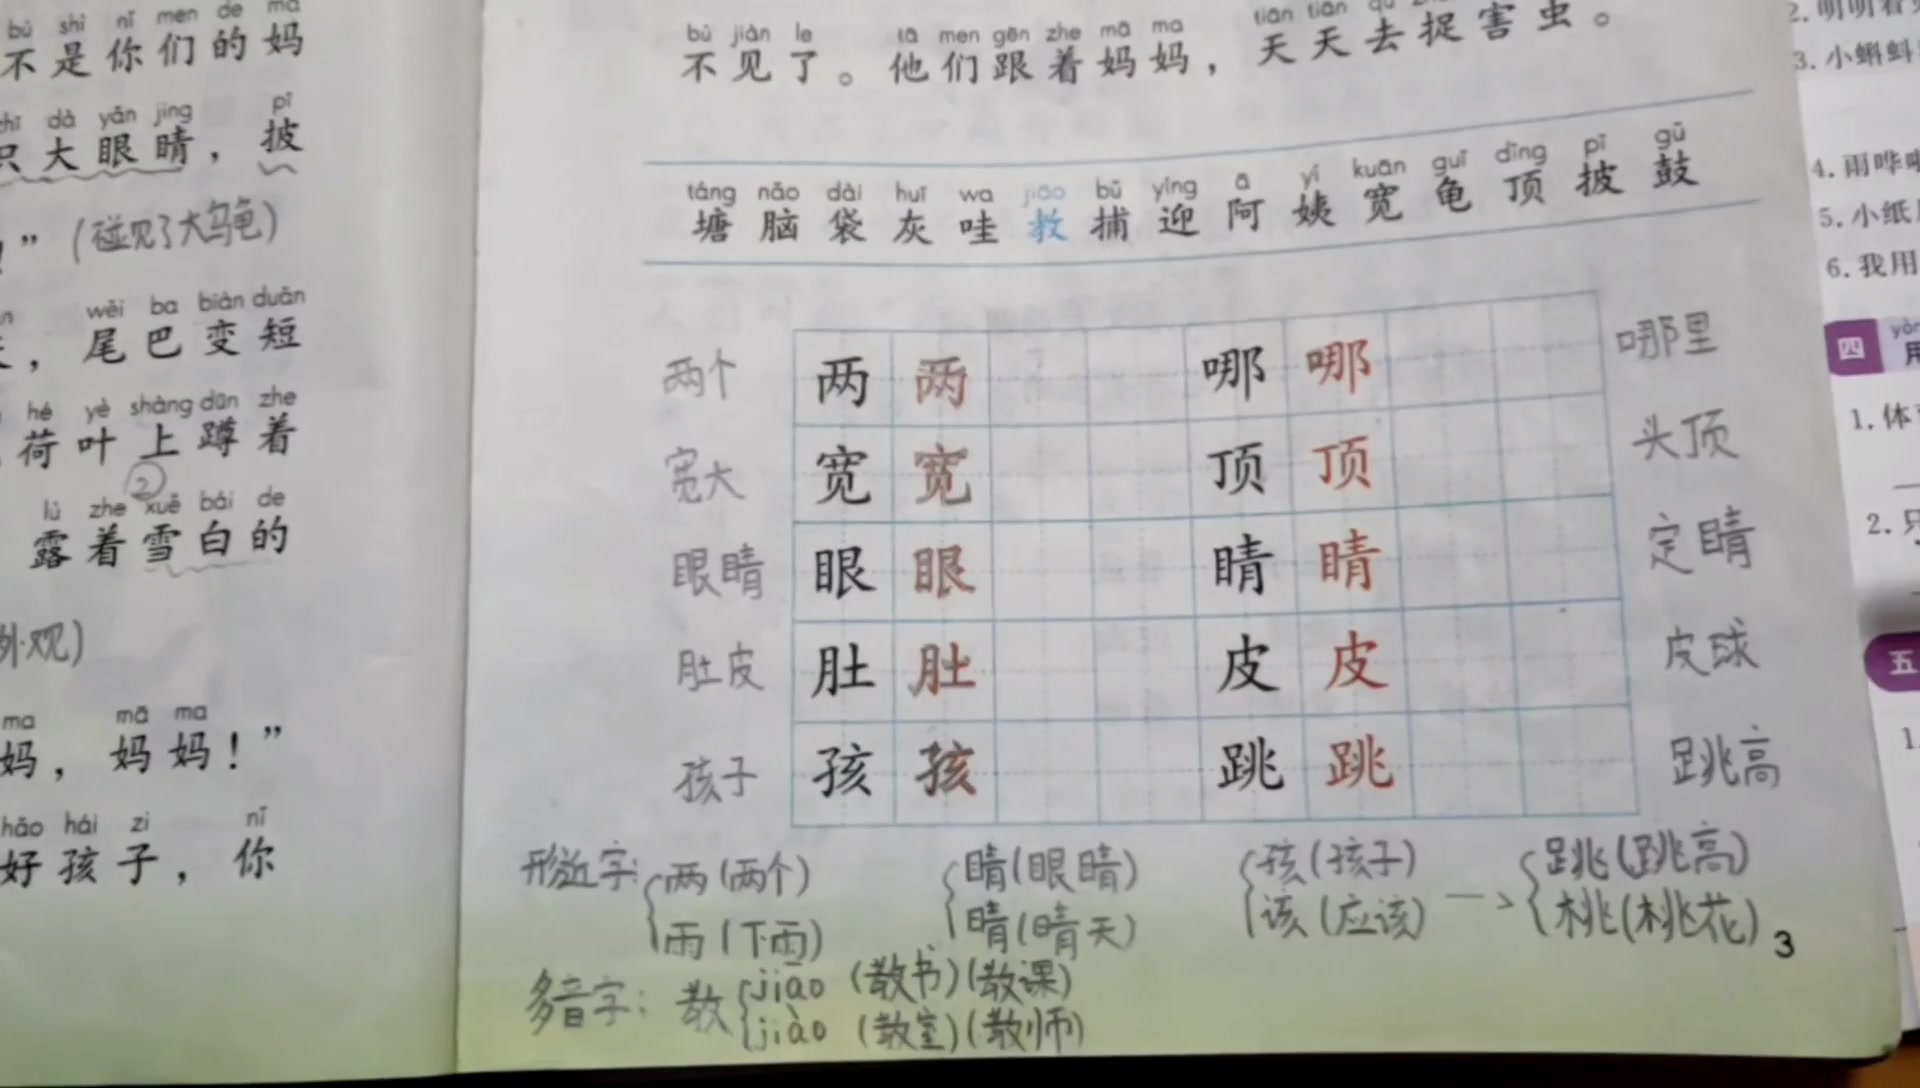 bú shì nǐ men de mā
不是你们的妈
dà yǎn jing pī
只大眼睛，披
！”（碰见了大乌龟）
wěi ba biàn duǎn
，尾巴变短
hé yè shàng dūn zhe
荷叶上蹲着
②
lù zhe xuě bái de
露着雪白的
外观）
ma mā ma
妈，妈妈！”
hǎo hái zi nǐ
好孩子，你
bú jiàn le tā men gēn zhe mā ma tiān tiān qù
不见了。他们跟着妈妈，天天去捉害虫。
táng nǎo dài huī wa jiāo bǔ yíng ā yí kuān guī dǐng pī gǔ
塘脑袋灰哇教捕迎阿姨宽龟顶披鼓
两个 两 两 哪 哪 哪里
宽大 宽 宽 顶 顶 头顶
眼睛 眼 眼 睛 睛 定睛
肚皮 肚 肚 皮 皮 皮球
孩子 孩 孩 跳 跳 跳高
形近字：两（两个） 睛（眼睛） 孩（孩子） 跳（跳高）
雨（下雨） 晴（晴天） 该（应该） → 桃（桃花）
3
多音字：教 jiāo（教书）（教课）
jiào（教室）（教师）
2.明明看
3.小蝌蚪
4.雨哗
5.小纸
6.我用
四 用
1.体
2.只
五
1.